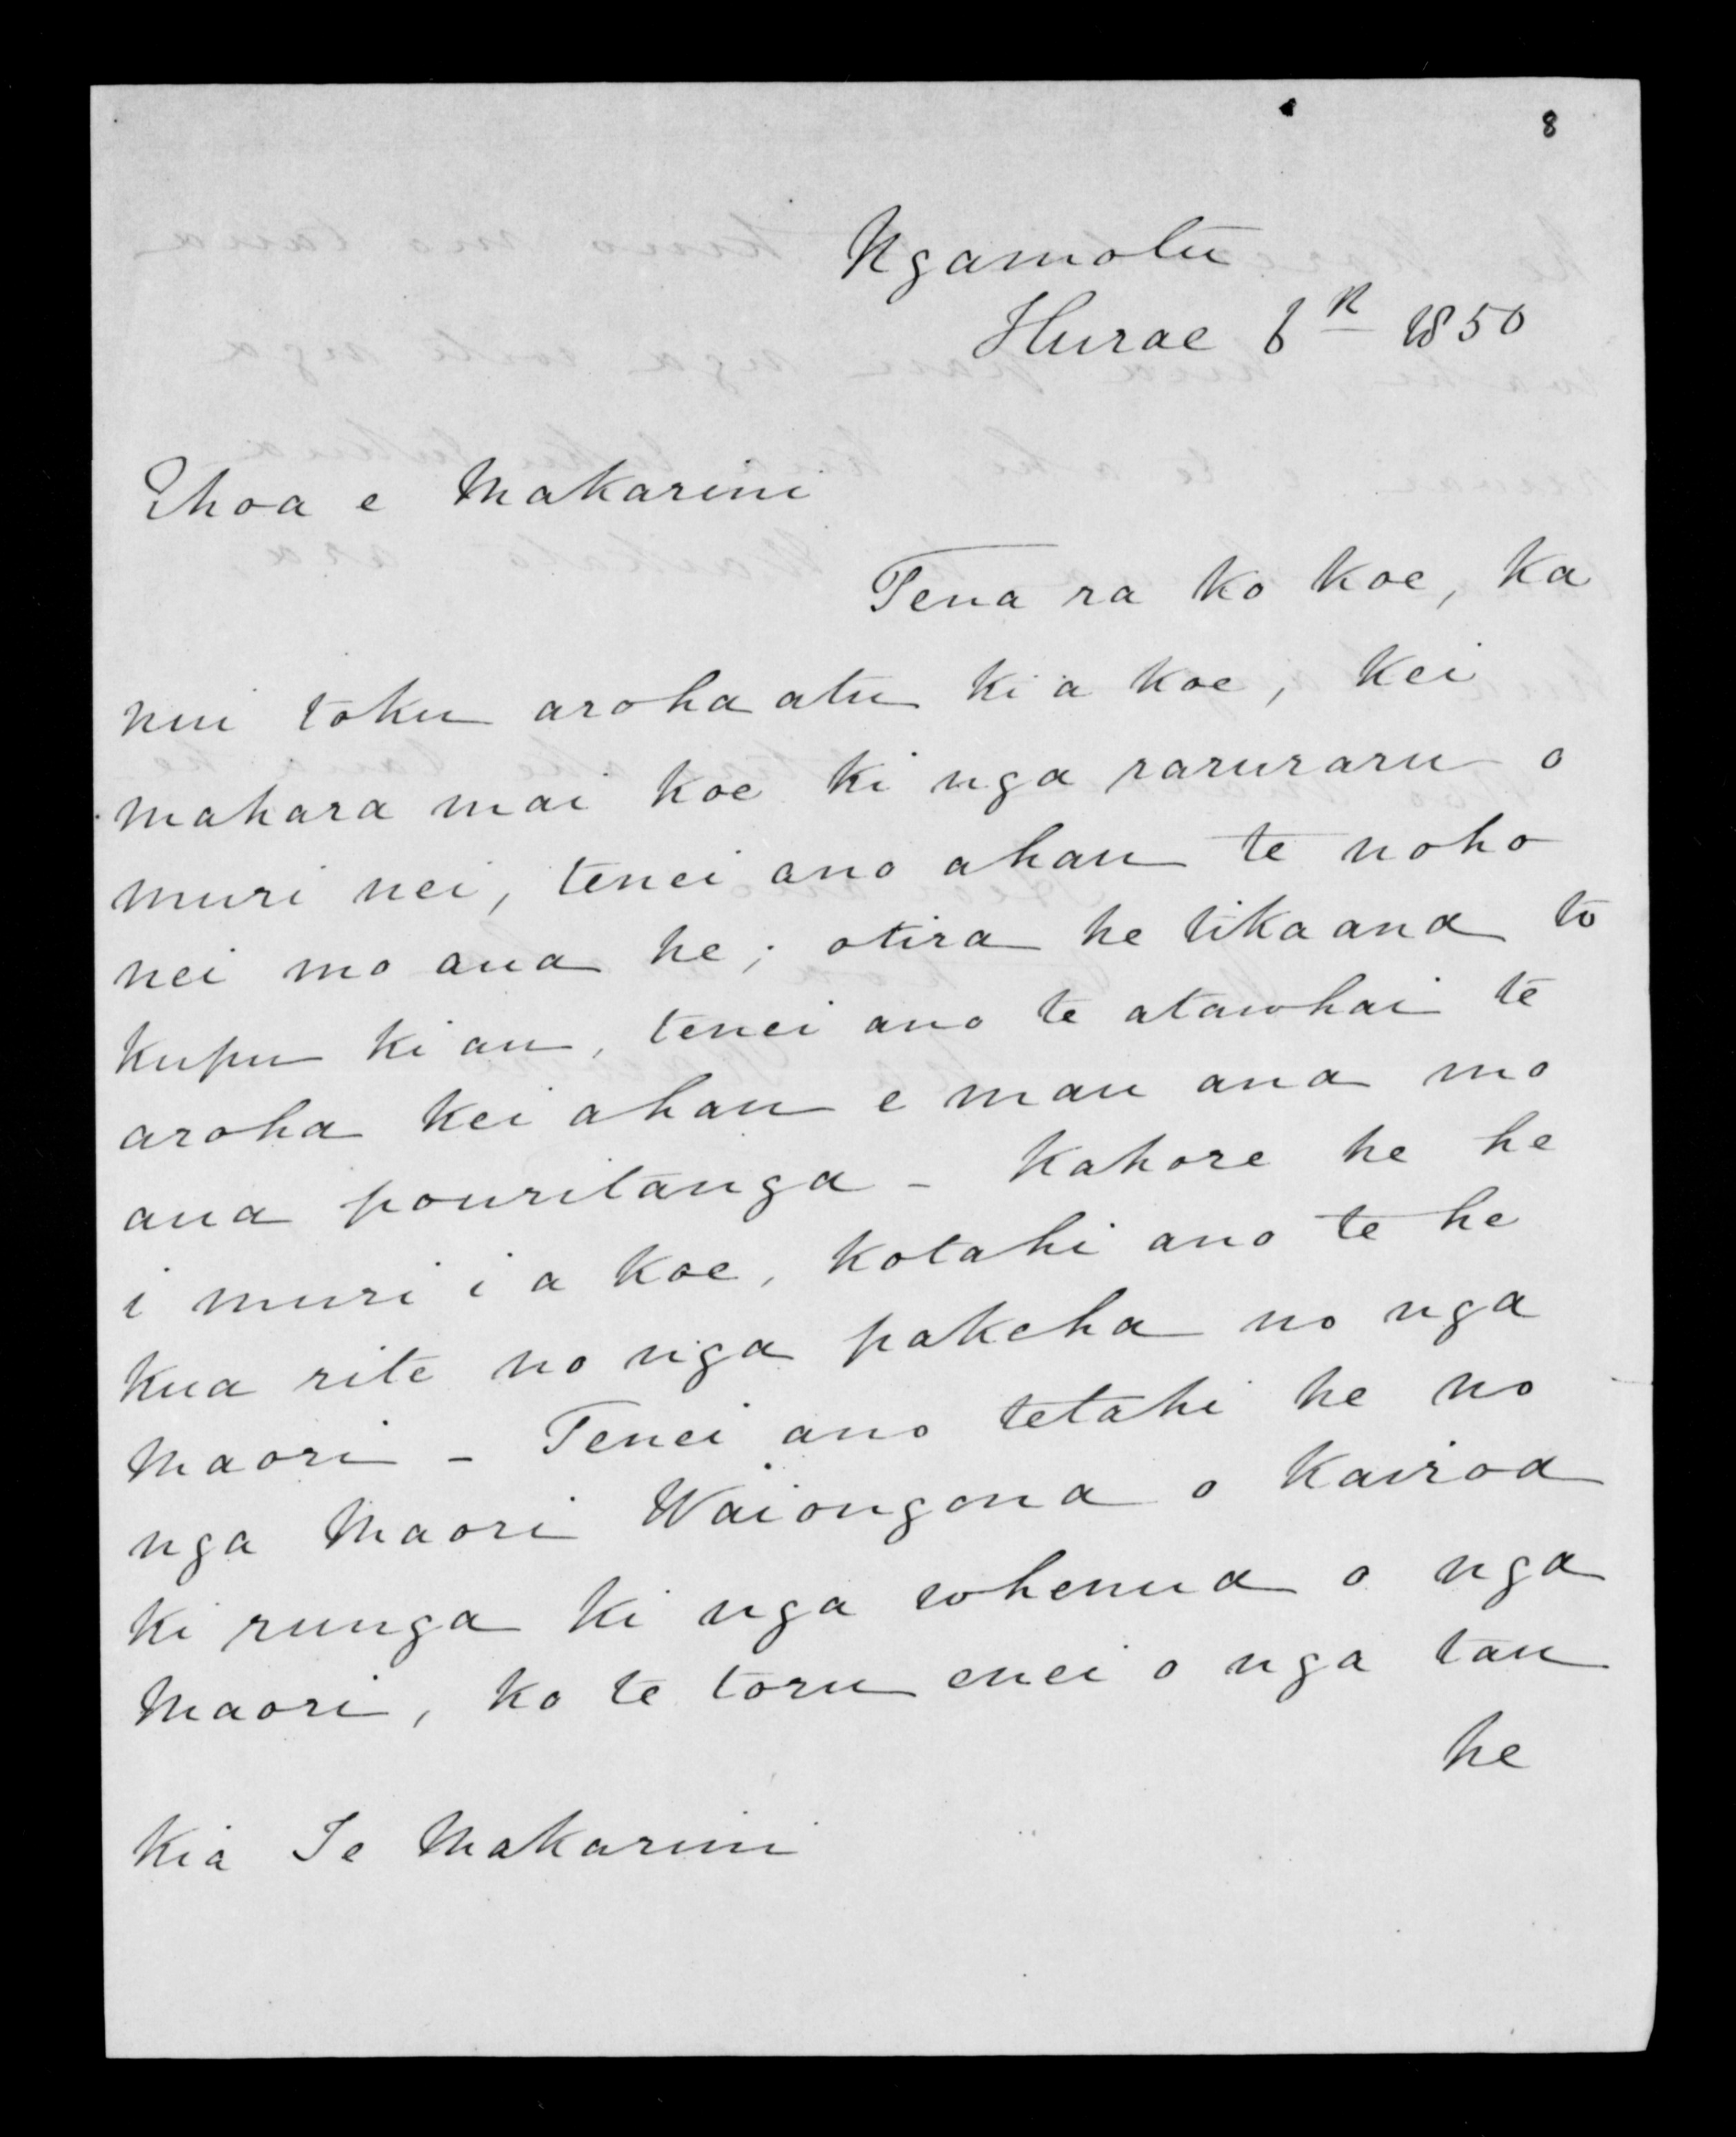 8
Ngamotu
Hurae 6 R 1850
Ehoa e Makarini
Tena ra ko koe, ka
nui toku aroha atu ki a koe, kei
mahara mai koe ki nga raruraru o
muri nei, tenei ano ahau te noho
nei mo aua he; otira he tika ana to
kupu ki au, tenei ano te atawhai te
aroha kei ahau e mau ana mo
aua pouritanga - Kahore he he
i muri i a koe, kotahi ano te he
kua rite no nga pakeha no nga
Maori - Tenei ano tetahi he no
nga Maori Waiongona o Kairoa
ki runga ki nga whenua o nga
Maori, ko te toru enei o nga tau
he
Kia Te Makarini